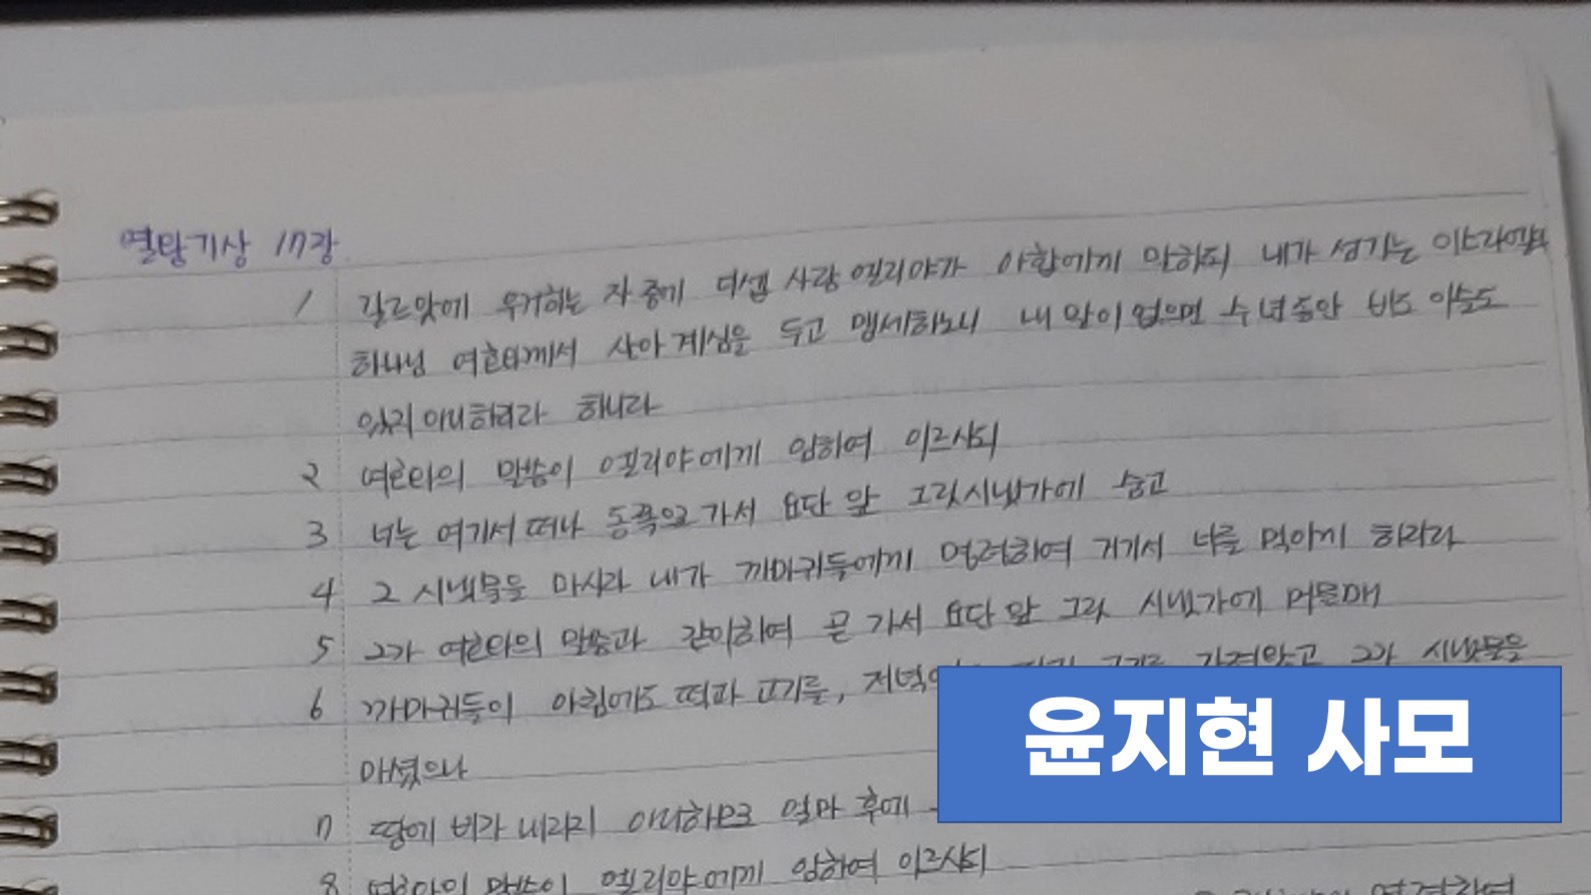 열왕기상 17장
1 길르앗에 우거하는 자 중에 디셉 사람 엘리야가 아합에게 말하되 내가 섬기는 이스라엘의
하나님 여호와께서 살아 계심을 두고 맹세하노니 내 말이 없으면 수 년 동안 비도 이슬도
있지 아니하리라 하니라
2 여호와의 말씀이 엘리야에게 임하여 이르시되
3 너는 여기서 떠나 동쪽으로 가서 요단 앞 그릿 시냇가에 숨고
4 그 시냇물을 마시라 내가 까마귀들에게 명령하여 거기서 너를 먹이게 하리라
5 그가 여호와의 말씀과 같이하여 곧 가서 요단 앞 그릿 시냇가에 머물매
6 까마귀들이 아침에도 떡과 고기를, 가져왔고 그가 시냇물을
마셨으나
7 땅에 비가 내리지 아니하므로 얼마 후에
8 여호와의 말씀이 엘리야에게 임하여 이르시되
윤지현 사모